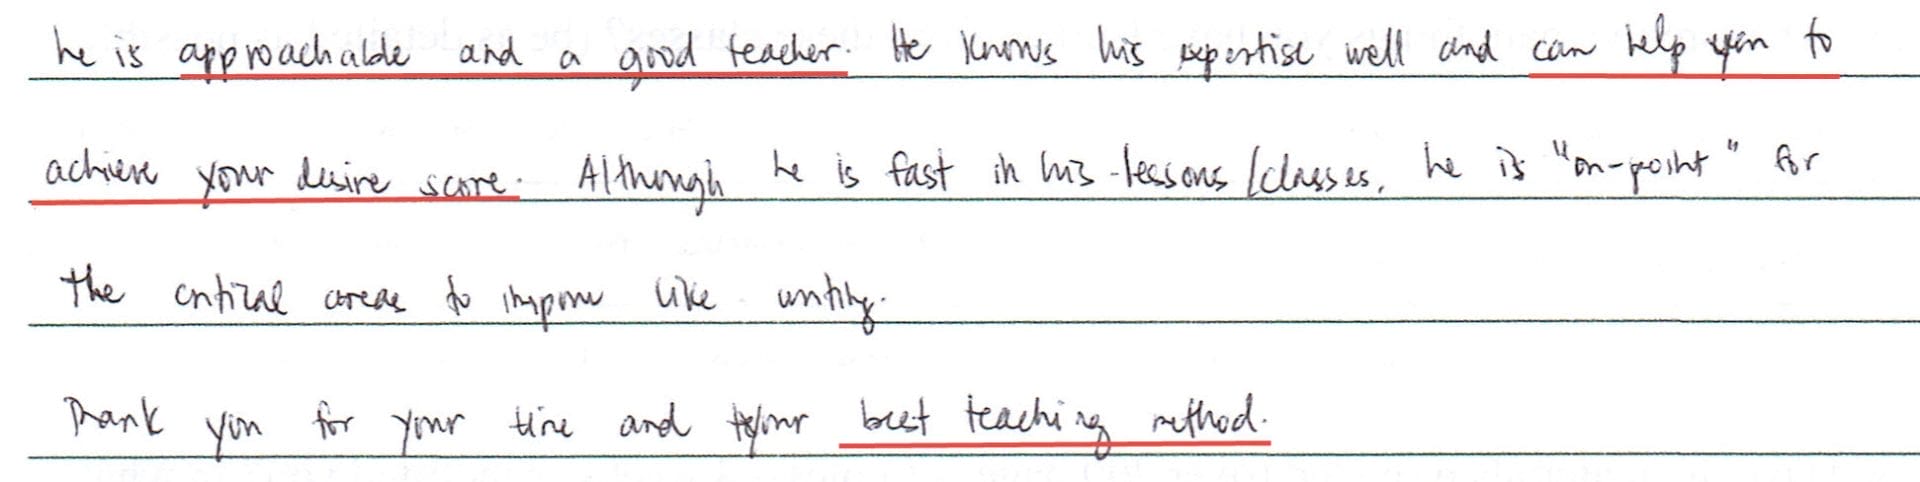 he is approachable and a good teacher. He knows his expertise well and can help you to
achieve your desire score. Although he is fast in his lessons/classes, he is "on-point" for
the critical areas to improve like writing.
Thank you for your time and your best teaching method.